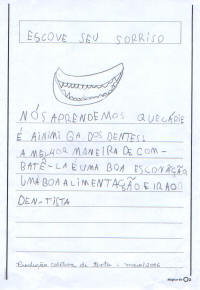 ESCOVE SEU SORRISO
NÓS APRENDEMOS QUE CÁRIE
É A INIMIGA DOS DENTES!
A MELHOR MANEIRA DE COM-
BATÊ-LA É UMA BOA ESCOVAÇÃO,
UMA BOA ALIMENTAÇÃO E IR AO
DEN-TISTA
Produção coletiva de texto - maio/2006